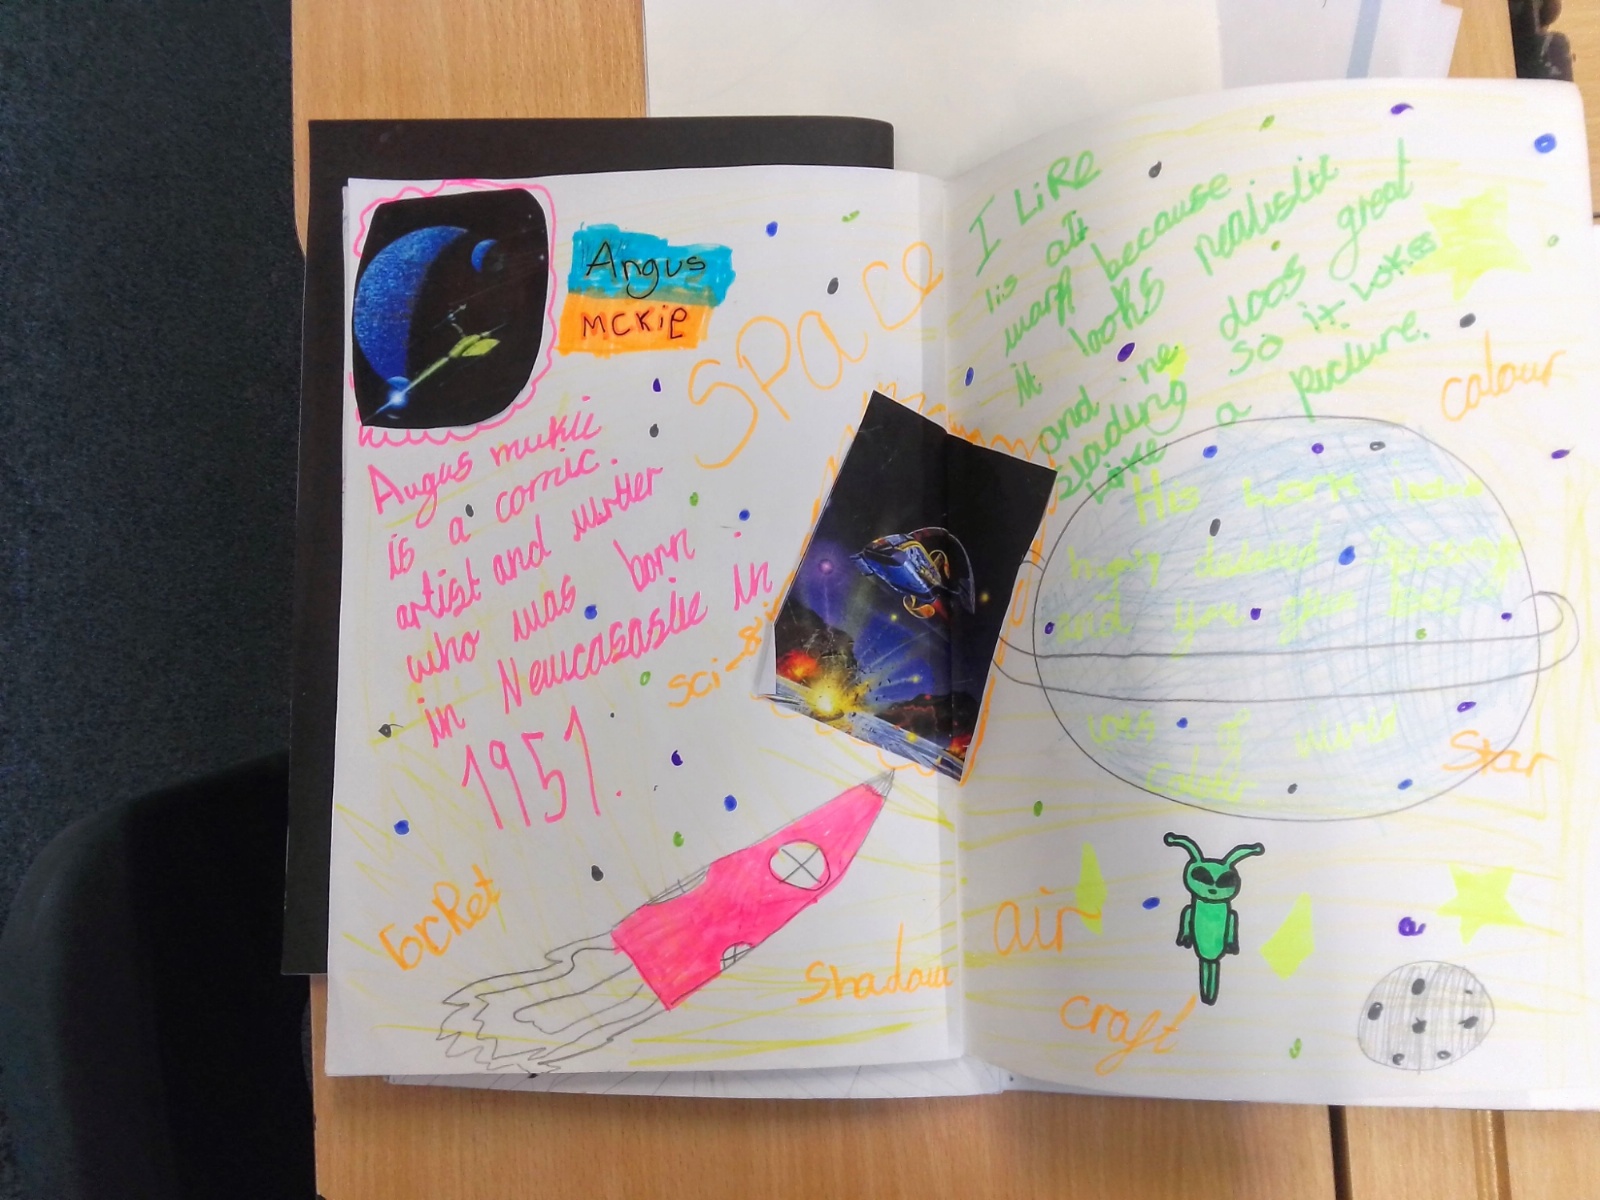 Angus
MCKIE
SPACE
Angus mckie
is a comic
artist and writter
who was born
in Newcasaslie in
1951.
sci-fi
rocket
Shadow
I LiKe
his art
work because
it looks realistic
and he does great
Shading so it looks
Like a picture.
colour
His work is
highly detailed
and you
lots of
Star
air
craft